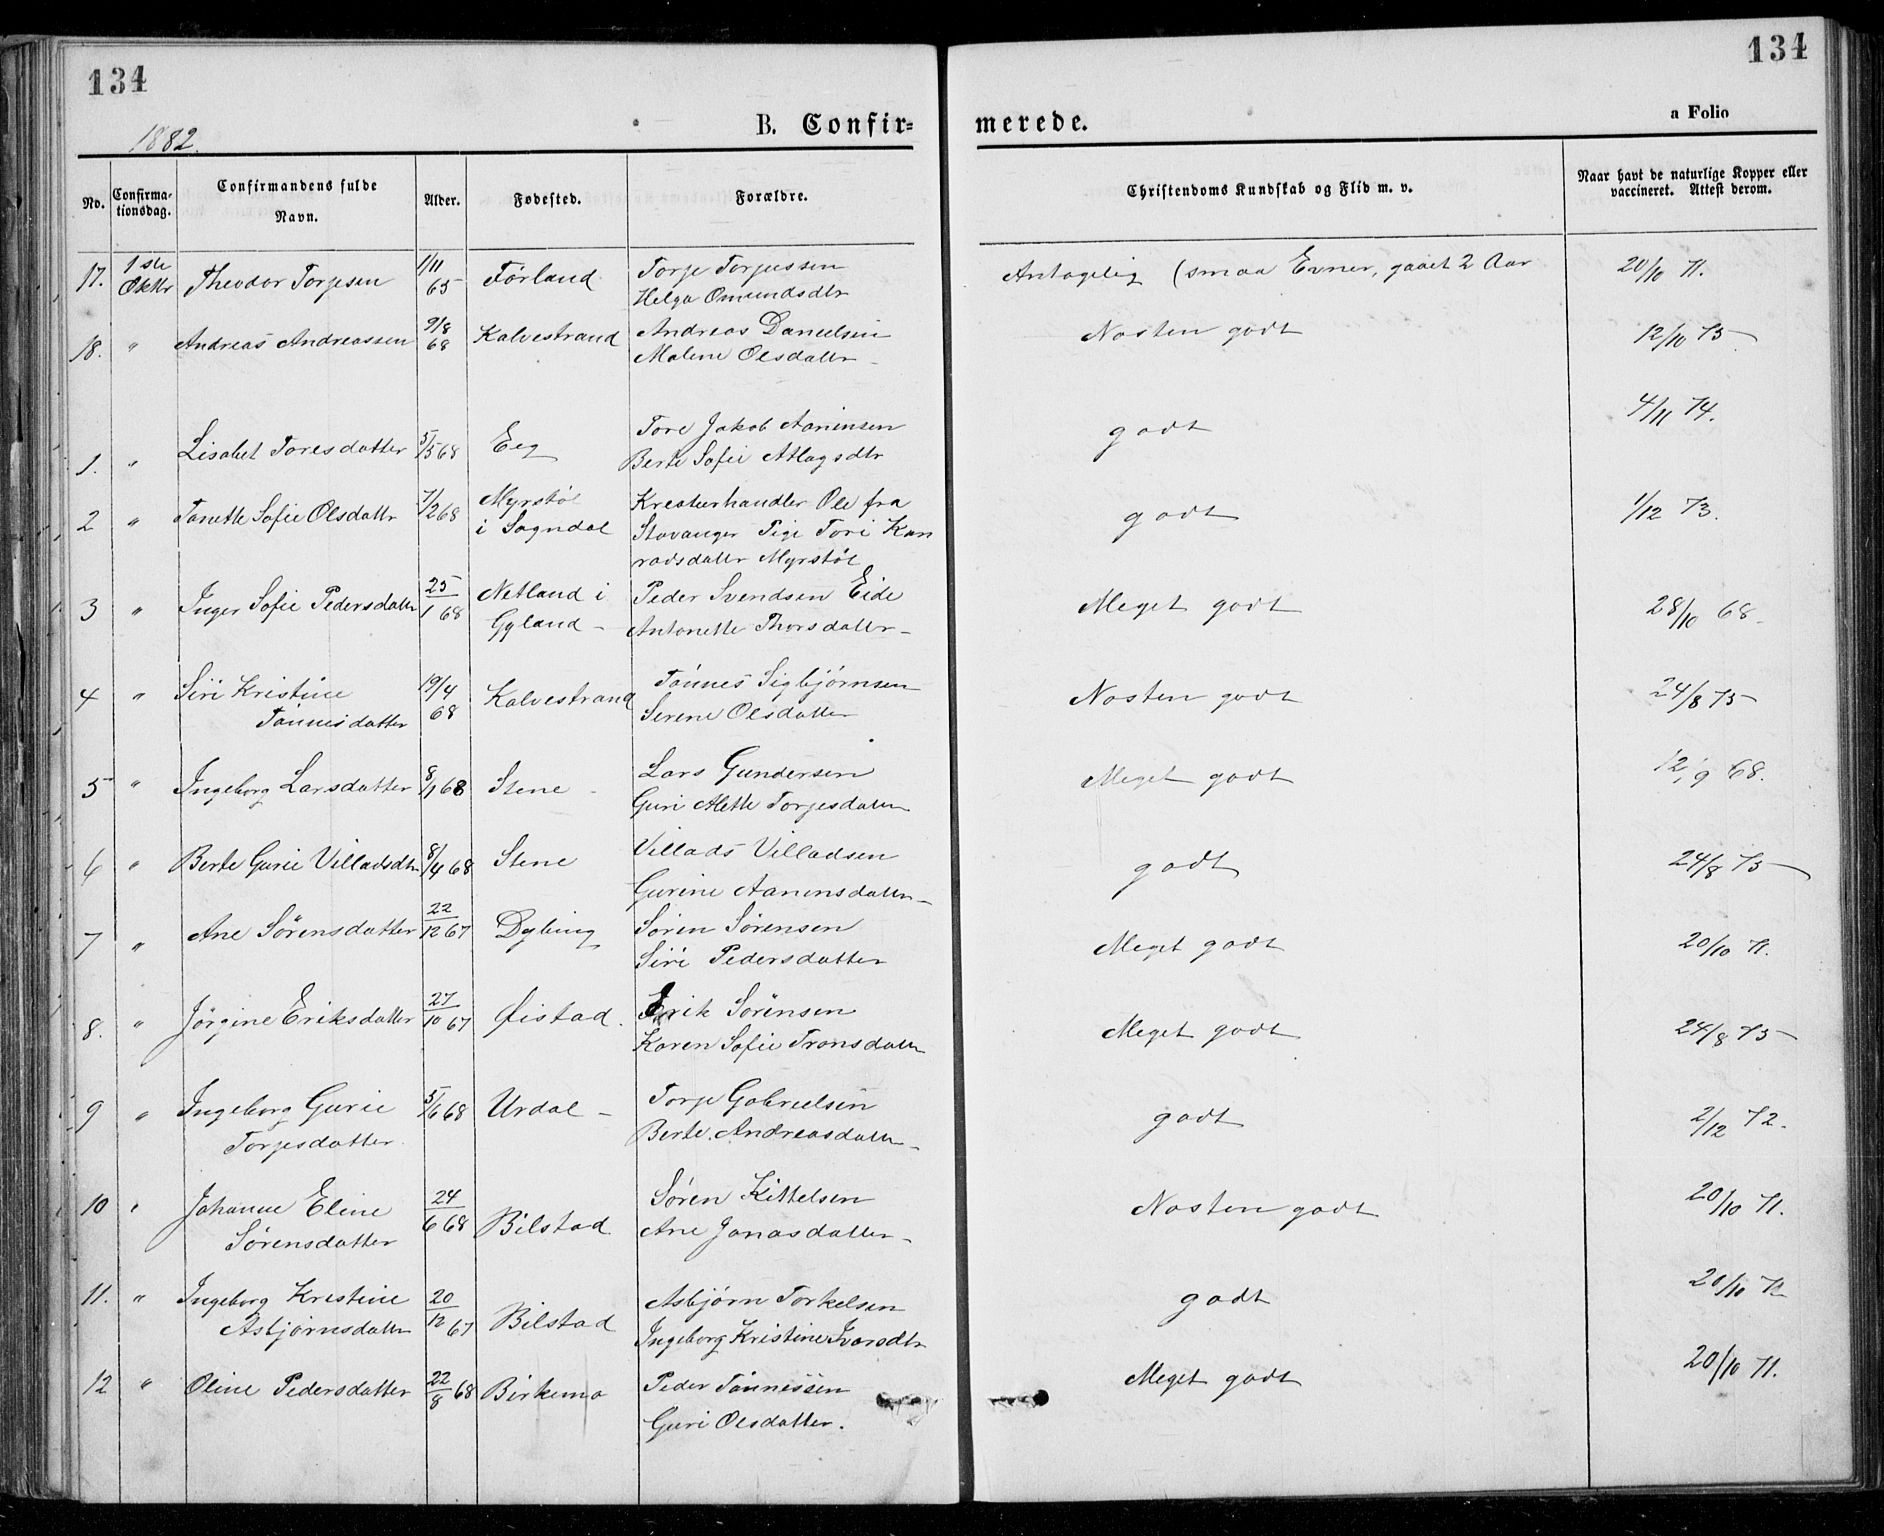 134
134
1882.
B. Confir= merede.
a Folio
No.
Confirma-
tionsdag.
Confirmandens fulde
Navn.
Alder.
Fødested.
Forældre.
Christendoms Kundskab og Flid m. v.
Naar havt de naturlige Kopper eller
vaccineret. Attest derom.
17. 1ste Oktbr Theodor Torjesen 1/11 65 Førland Torje Torjussen Antagelig (smaa Evner, gaaet 2 Aar 20/10 71.
Helga Omundsdtr
18. " Andreas Andreassen 9/8 68 Kalvestrand Andreas Danielsen Nesten godt 12/10 75
Malene Olsdatter
1. " Lisabet Toresdatter 5/5 68 Eeg Tore Jakob Aanensen godt 4/11 74.
Berte Sofie Atlagsdtr
2 " Tanette Sofie Olsdattr 7/2 68 Myrstøl Kreaturhandler Ole fra godt 1/12 73.
i Sogndal Stavanger Pige Tori Kon
radsdatter Myrstøl
3 " Inger Sofie Pedersdatter 25/1 68 Netland i Peder Svendsen Eide Meget godt 28/10 68.
Gyland Antonette Thorsdatter
4 " Siri Kristine 19/4 68 Kalvestrand Tønnes Sigbjørnsen Nesten godt 24/8 75
Tønnesdatter Serene Olsdatter
5 " Ingeborg Larsdatter 8/1 68 Stene Lars Gundersen Meget godt 12/9 68.
Guri Alette Torjesdatter
6 " Berte Gurie Villadsdtr 8/4 68 Stene Villads Villadsen godt 24/8 75
Gurine Aanensdatter
7 " Ane Sørensdatter 22/12 67 Dybing Søren Sørensen Meget godt 20/10 71.
Siri Pedersdatter
8. " Jørgine Eriksdatter 27/10 67 Øistad. Erik Sørensen Meget godt 24/8 75
Karen Sofie Tronsdatter
9 " Ingeborg Gurie 5/6 68 Urdal Torje Gabrielsen godt 2/12 72.
Torjesdatter. Berte Andreasdatter
10 " Johanne Eline 24/6 68 Bilstad Søren Kittelsen Nesten godt 20/10 71.
Sørensdatter Ane Jonasdatter
11. " Ingeborg Kristine 20/12 67 Bilstad Asbjørn Torkelsen godt 20/10 72
Asbjørnsdatter Ingeborg Kristine Ivarsdtr
12 " Oline Pedersdatter 22/8 68 Birkemo Peder Tønnessen Meget godt 20/10 71.
Guri Olsdatter.